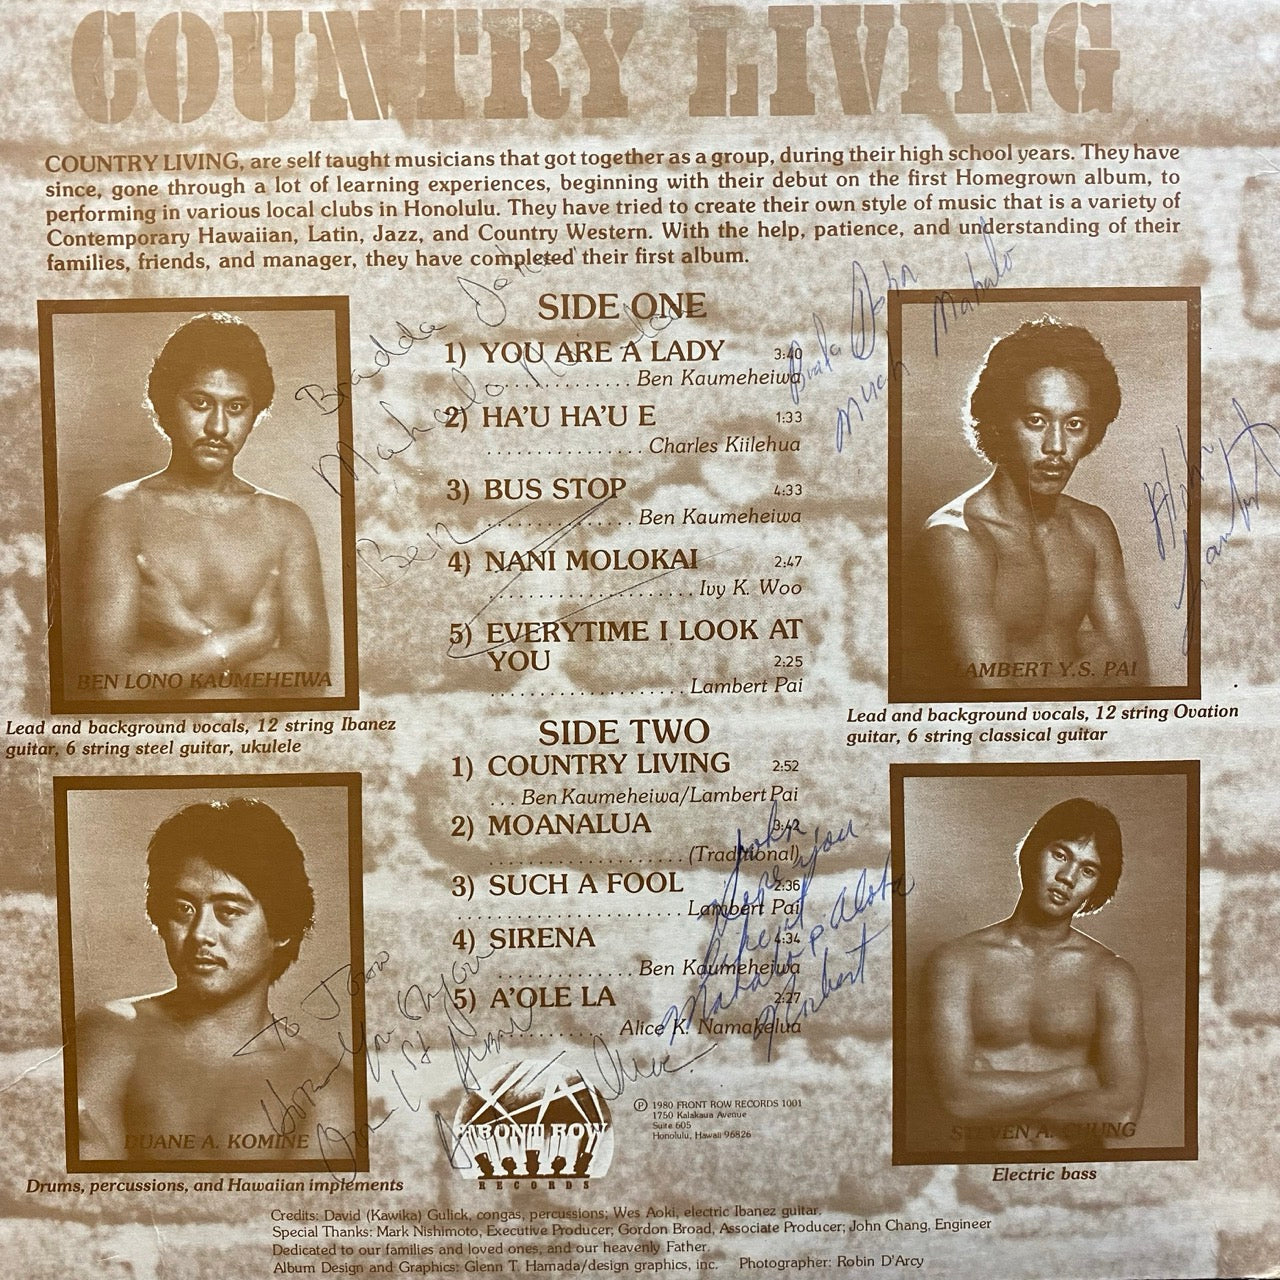 COUNTRY LIVING
COUNTRY LIVING, are self taught musicians that got together as a group, during their high school years. They have
since, gone through a lot of learning experiences, beginning with their debut on the first Homegrown album, to
performing in various local clubs in Honolulu. They have tried to create their own style of music that is a variety of
Contemporary Hawaiian, Latin, Jazz, and Country Western. With the help, patience, and understanding of their
families, friends, and manager, they have completed their first album.
SIDE ONE
1) YOU ARE A LADY 3:40
............. Ben Kaumeheiwa
2) HA'U HA'U E 1:33
................ Charles Kiilehua
3) BUS STOP 4:33
............... Ben Kaumeheiwa
4) NANI MOLOKAI 2:47
..................... Ivy K. Woo
5) EVERYTIME I LOOK AT
YOU 2:25
.................... Lambert Pai
SIDE TWO
1) COUNTRY LIVING 2:52
... Ben Kaumeheiwa/Lambert Pai
2) MOANALUA 3:42
.................... (Traditional)
3) SUCH A FOOL 2:36
....................... Lambert Pai
4) SIRENA 4:34
.............. Ben Kaumeheiwa
5) A'OLE LA 2:27
............ Alice K. Namakelua
BEN LONO KAUMEHEIWA
Lead and background vocals, 12 string Ibanez
guitar, 6 string steel guitar, ukulele
LAMBERT Y.S. PAI
Lead and background vocals, 12 string Ovation
guitar, 6 string classical guitar
DUANE A. KOMINE
Drums, percussions, and Hawaiian implements
STEVEN A. CHUNG
Electric bass
Bradda
Mahalo
Ben
much Mahalo
John
Hope you
Mahalo & Aloha
FRONT ROW
RECORDS
Ⓟ 1980 FRONT ROW RECORDS 1001
1750 Kalakaua Avenue
Suite 605
Honolulu, Hawaii 96826
Credits: David (Kawika) Gulick, congas, percussions; Wes Aoki, electric Ibanez guitar.
Special Thanks: Mark Nishimoto, Executive Producer; Gordon Broad, Associate Producer; John Chang, Engineer
Dedicated to our families and loved ones, and our heavenly Father.
Album Design and Graphics: Glenn T. Hamada/design graphics, inc. Photographer: Robin D'Arcy